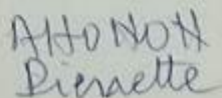 AHONON
Pierrette